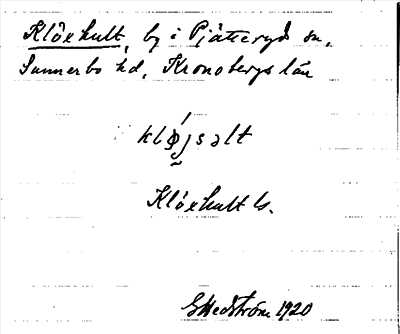 Klöxhult, by i Pjätteryd sn,
Sunnerbo hd, Kronobergs län
kløjsəlt
Klöxhult ls.
G Hedström 1920